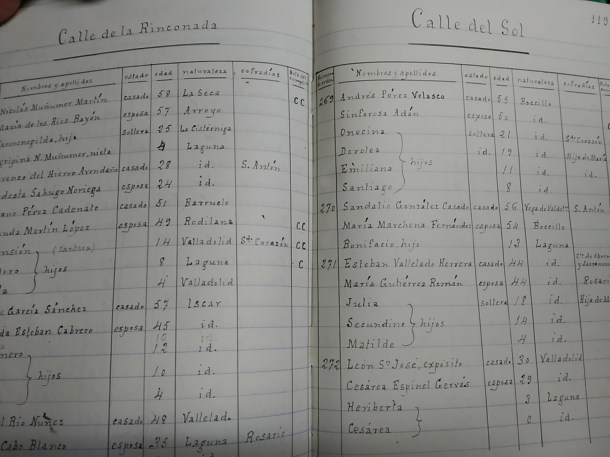 Calle de la Rinconada
Nombres y apellidos estado edad naturaleza cofradías
Nicolás Muñumer Martín casado 58 La Seca
María de los Ríos Bayón esposa 57 Arroyo CC
hija soltera 25 La Cistérniga
N. Muñumer, nieta 4 Laguna
Lorenzo del Hierro Avendaño casado 28 id. S. Antón
Modesta Sahugo Noriega esposa 24 id.
Pérez Cadenate casado 51 Barruelo
Martín López esposa 49 Rodilana CC
14 Valladolid Sdo. Corazón CC
hijos 8 Laguna C
4 Valladolid
García Sánchez casado 57 Iscar
Esteban Cabrero esposa 45 id.
12 id.
hijos 10 id.
4 id.
Río Núñez casado 48 Vallelado
Cabo Blanco esposa 35 Laguna Rosario
119
Calle del Sol
Nombres y apellidos estado edad naturaleza cofradías
269 Andrés Pérez Velasco casado 55 Boecillo
Sinforosa Adán esposa 52 id.
Onecina soltera 21 id. Sdo. Corazón
Dorotea id. 19 id. Hija de María
Emiliana hijos 11 id. id.
Santiago 8 id.
270 Sandalio González Casado casado 56 S. Antón
María Marchena Fernández esposa 54 Boecillo
Bonifacio, hijo 13 Laguna
271 Esteban Vallelado Herrera casado 44 id.
María Gutiérrez Román esposa 44 id. Rosario
Julia soltera 18 id. Hija de M
Secundino hijos 14 id.
Matilde 4 id.
272 León Sn José, expósito casado 30 Valladolid
Cesárea Espinel Gervás esposa 29 id.
Heriberta 3 Laguna
Cesárea 0 id.